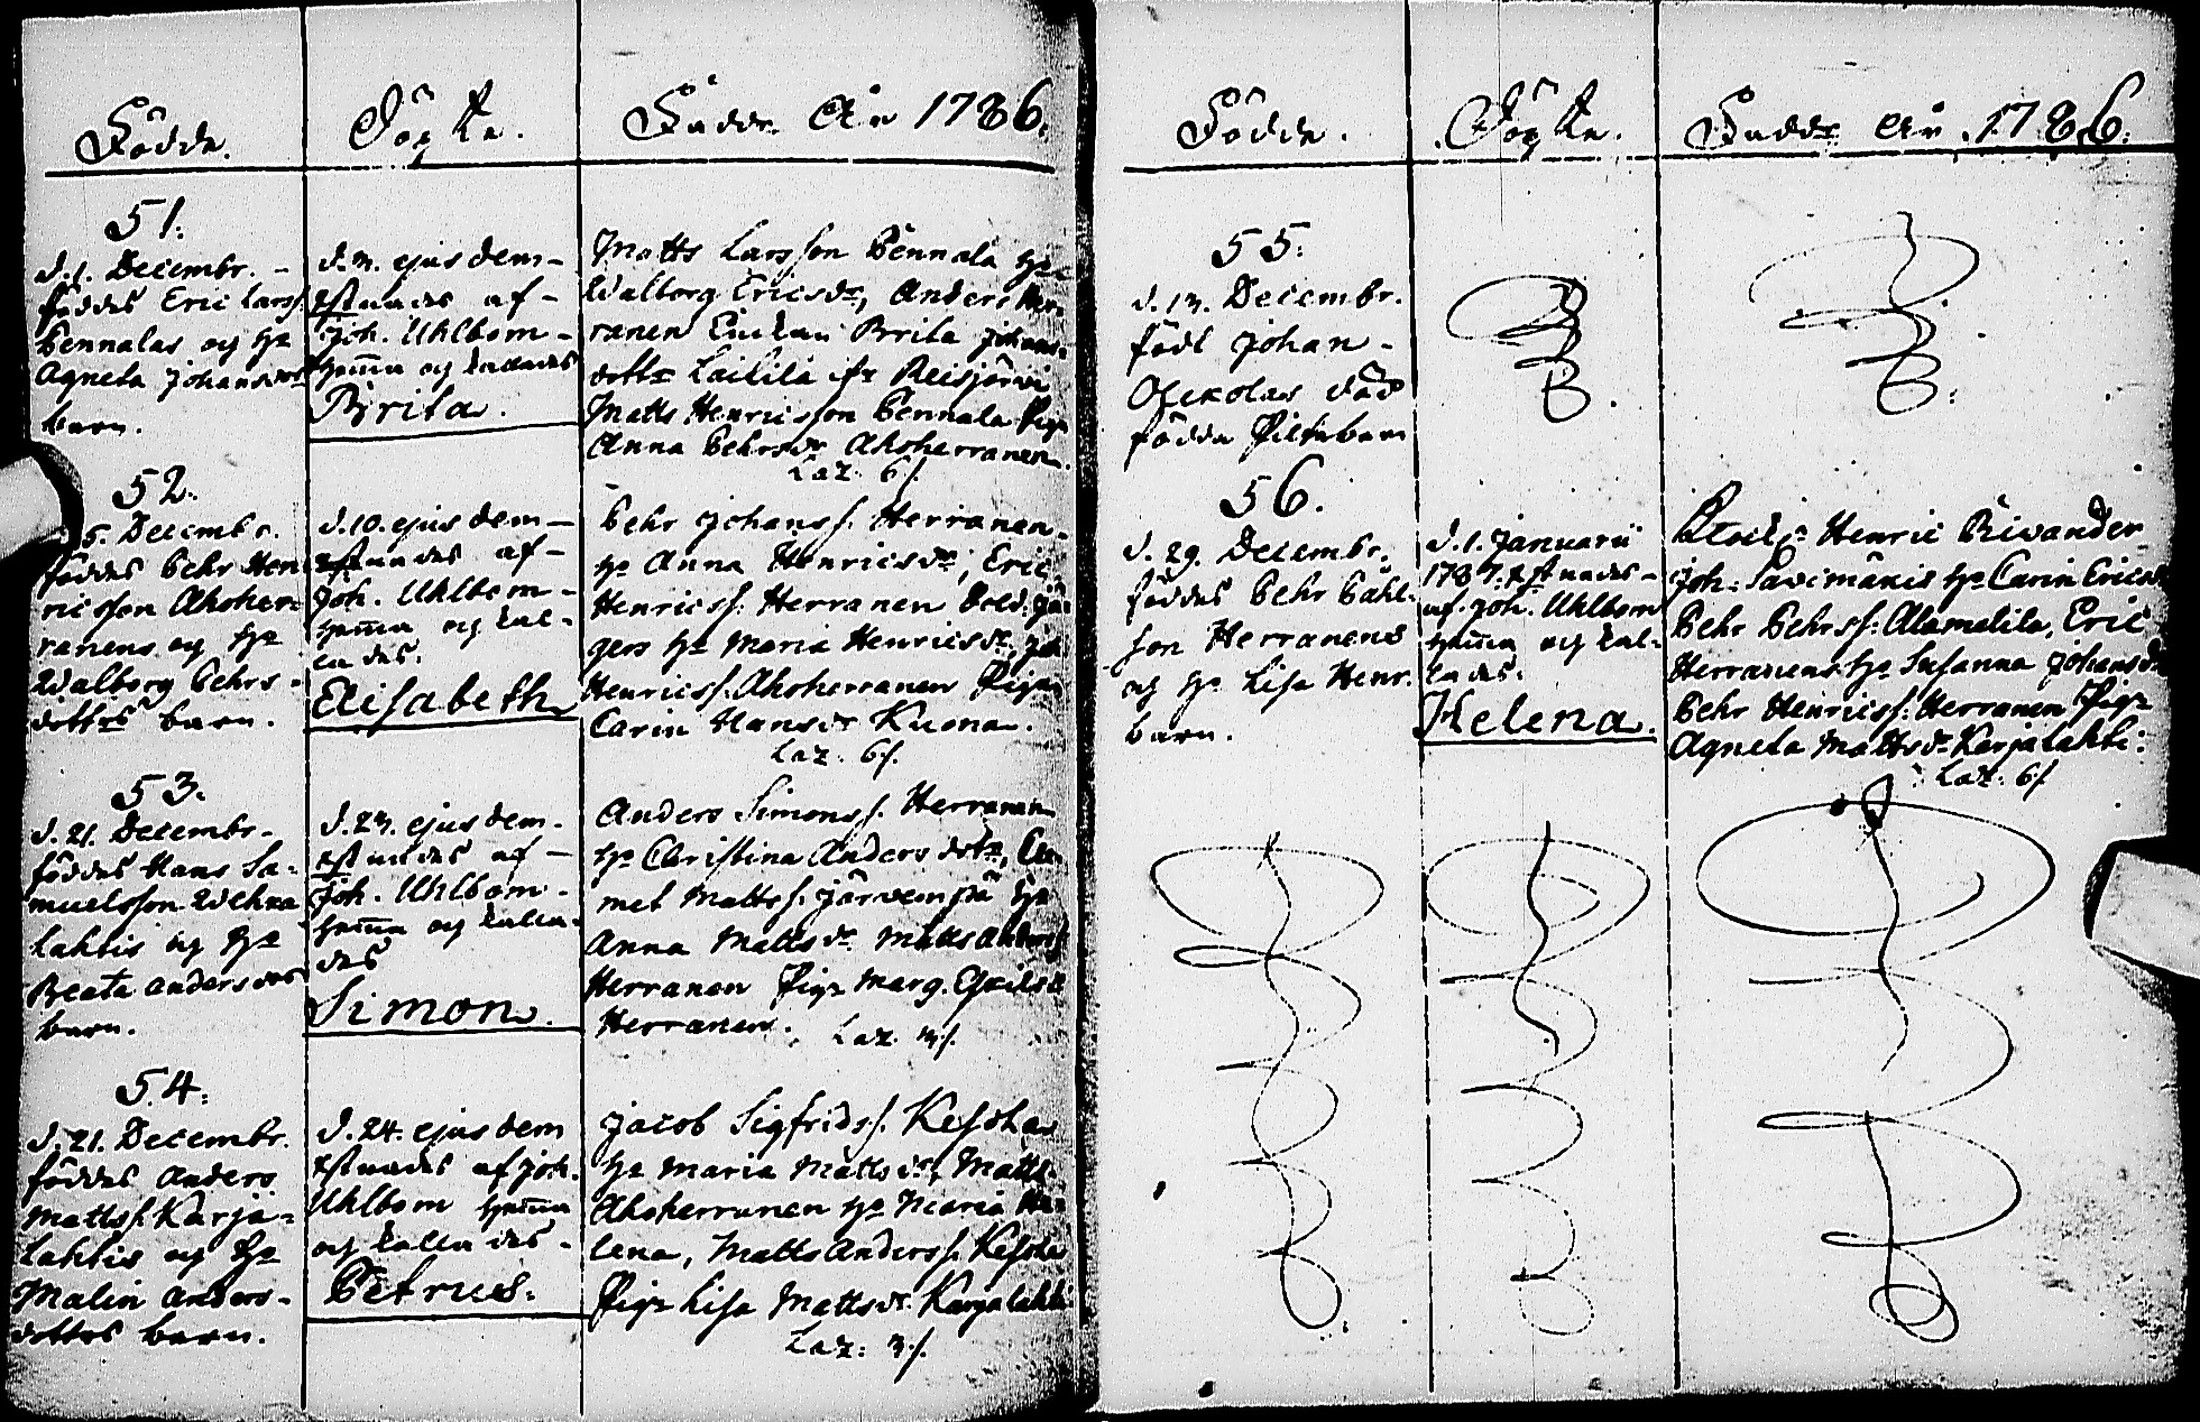 Födde.
Döpte.
Faddr. År 1786.
51.
d. 1. Decembr. -
föddes Eric Larss.
Pennalas og H:s
Agneta Johansdrs
barn.
d. 3. ejusdem -
af -
Joh. Uhlbom -
hemma og kallades
Brita.
Matts Larsson Pennala H:o
Walborg Ericsdr, Anders Her-
ranen Enckan Brita Johans-
dottr Lailila ifr Reisjärvi
Matts Henricsson Pennala Pig:n
Anna Pehrsdr Ahoherranen.
Laz. 6 s.
52.
5. Decembr.
föddes Pehr Hen-
ricsson Ahoher-
ranens og H:s
Walborg Pehrs-
dotters barn.
d. 10. ejusdem -
af -
Joh. Uhlbom -
hemma og kal-
lades.
Elisabeth
Pehr Johanss. Herranen
H:o Anna Henricsdr, Eric
Henricss. Herranen
gers H:o Maria Henricsdr, Joh.
Henricss. Ahoherranen Pigan
Carin Hansdr Kumona.
Laz. 6 s.
53.
d. 21. Decembr.
föddes Hans Sa-
muelsson
lahtis og H:s
Beata Andersdrs
barn.
d. 23. ejusdem -
af -
Joh. Uhlbom -
hemma og kalla-
des
Simon.
Anders Simonss. Herranen
H:o Christina Anders dotr,
met Mattss. Järvempä H:o
Anna Mattsdr Matts Anderss.
Herranen Pig:n Marg. Eskilsd.
Herranen. Laz. 3 s.
54.
d. 21. Decembr.
föddes Anders
Mattss. Karja-
lahtis og H:s
Malin Anders-
dotters barn.
d. 24. ejusdem
af Joh.
Uhlbom hemma
og kallades -
Petrus.
Jacob Sigfridss. Kesoha
H:o Maria Mattsdr, Matts
Ahoherranen H:o Maria He-
lena, Matts Anderss. Kesoha
Pig:n Lisa Mattsdr Karjalahti
Laz: 3 s.
Födde.
Döpte.
Faddr År 1786.
55.
d. 13. Decembr.
födt Johan -
Olckolas död
födda Piltebarn
56.
d. 29. Decembr.
föddes Pehr Påhl-
son Herranens
og H:s Lisa Henr.
barn.
d. 1. Januarii
1787.
af Joh. Uhlbom
hemma og kal-
lades.
Helena.
Henric Brivander
Joh. Savimäkis H:o Carin Ericsdr
Pehr Pehrss. Alamelila, Eric
Herranens H:o Susanna Johansdr
Pehr Henricss. Herranen Pig:n
Agneta Mattsdr Karjalahti.
Laz: 6 s.